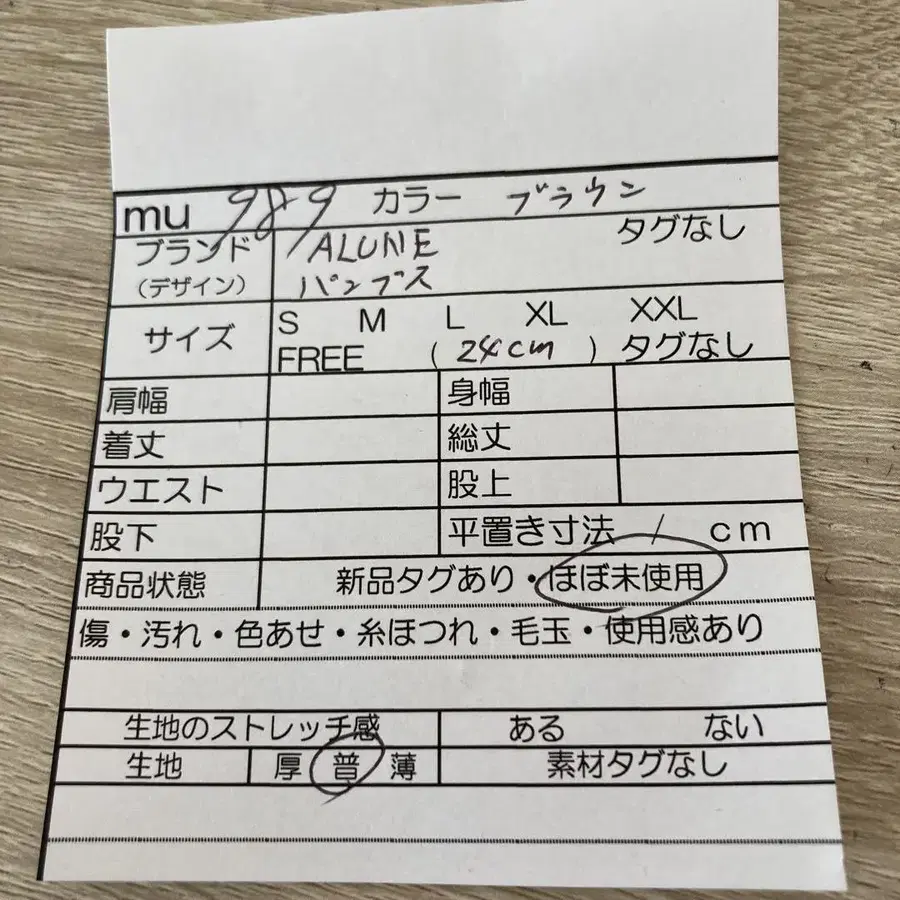 mu 989 カラー ブラウン
ブランド ALUNE タグなし
(デザイン) パンプス
サイズ S M L XL XXL
FREE (24cm) タグなし
肩幅 身幅
着丈 総丈
ウエスト 股上
股下 平置き寸法 / cm
商品状態 新品タグあり・ほぼ未使用
傷・汚れ・色あせ・糸ほつれ・毛玉・使用感あり
生地のストレッチ感 ある ない
生地 厚 普 薄 素材タグなし